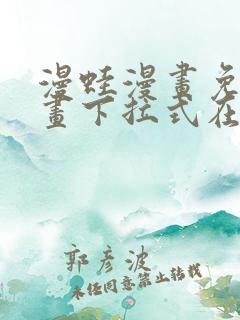 漫蛙漫畫免
畫下拉式在
郭彥波
未经同意禁止转载